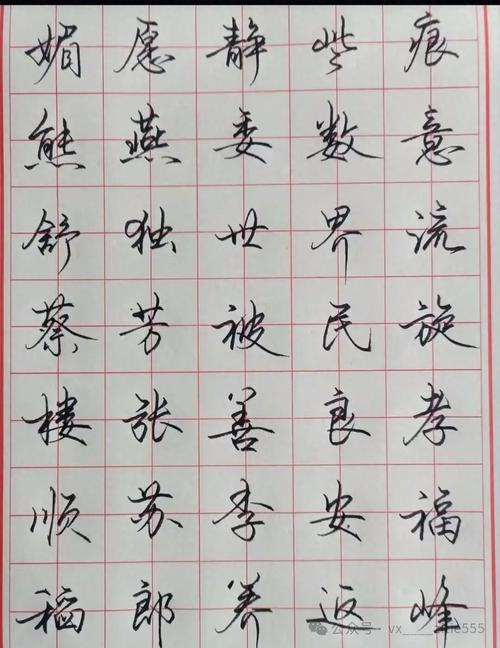 媚愿静些痕
熊燕委数意
舒独世界流
蔡芳被民旋
楼张善良孝
顺苏季安福
稻郎养返峰
公众号 vx
555